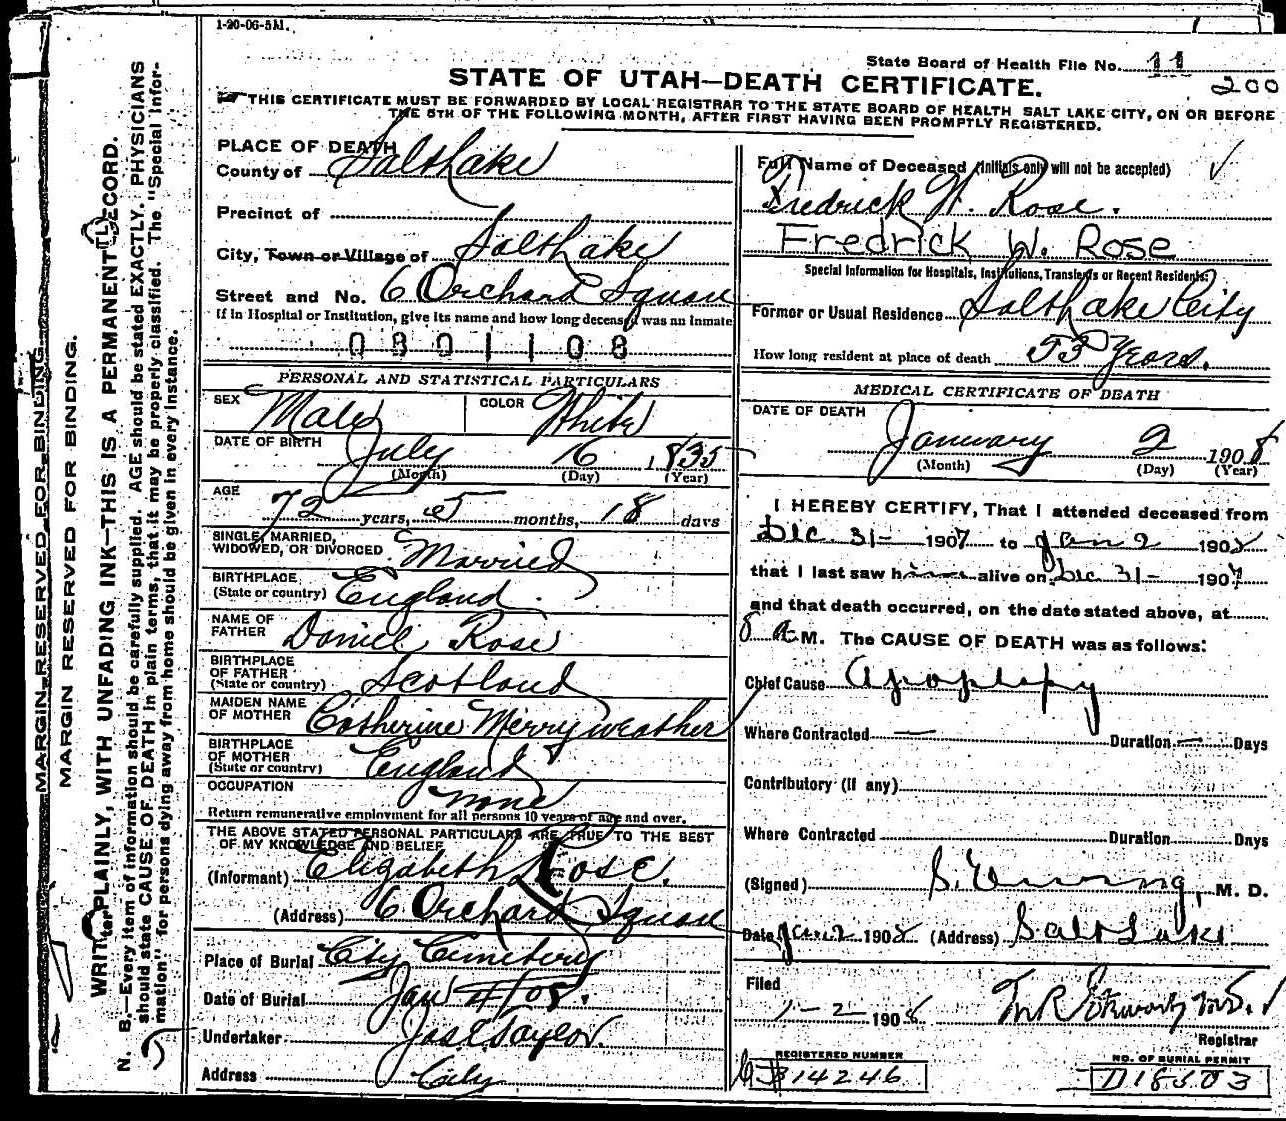 1-20-06-5M.
State Board of Health File No. 11
200
STATE OF UTAH—DEATH CERTIFICATE.
THIS CERTIFICATE MUST BE FORWARDED BY LOCAL REGISTRAR TO THE STATE BOARD OF HEALTH SALT LAKE CITY, ON OR BEFORE
THE 5TH OF THE FOLLOWING MONTH, AFTER FIRST HAVING BEEN PROMPTLY REGISTERED.
MARGIN RESERVED FOR BINDING.
MARGIN RESERVED FOR BINDING.
WRITE PLAINLY, WITH UNFADING INK—THIS IS A PERMANENT RECORD.
N. B.—Every item of information should be carefully supplied. AGE should be stated EXACTLY. PHYSICIANS
should state CAUSE OF DEATH in plain terms, that it may be properly classified. The "Special Infor-
mation" for persons dying away from home should be given in every instance.
PLACE OF DEATH
County of Salt Lake
Precinct of
City, Town or Village of Salt Lake
Street and No. 6 Orchard Square
If in Hospital or Institution, give its name and how long deceased was an inmate
0801108
PERSONAL AND STATISTICAL PARTICULARS
SEX Male COLOR White
DATE OF BIRTH July 16 1835
(Month) (Day) (Year)
AGE 72 years, 5 months, 18 days
SINGLE, MARRIED,
WIDOWED, OR DIVORCED Married
BIRTHPLACE
(State or country) England
NAME OF
FATHER Daniel Rose
BIRTHPLACE
OF FATHER
(State or country) Scotland
MAIDEN NAME
OF MOTHER Catherine Merryweather
BIRTHPLACE
OF MOTHER
(State or country) England
OCCUPATION none
Return remunerative employment for all persons 10 years of age and over.
THE ABOVE STATED PERSONAL PARTICULARS ARE TRUE TO THE BEST
OF MY KNOWLEDGE AND BELIEF
(Informant) Elizabeth Rose.
(Address) 6 Orchard Square
Place of Burial City Cemetery
Date of Burial Jan 4/08.
Undertaker Jos E Taylor.
Address City
Full Name of Deceased (Initials only will not be accepted)
Fredrick W. Rose.
Fredrick W. Rose
Special Information for Hospitals, Institutions, Transients or Recent Residents:
Former or Usual Residence Salt Lake City
How long resident at place of death 53 Years.
MEDICAL CERTIFICATE OF DEATH
DATE OF DEATH
January 2 1908
(Month) (Day) (Year)
I HEREBY CERTIFY, That I attended deceased from
Dec. 31— 1907 to Jan 2 1908
that I last saw him alive on Dec 31— 1907
and that death occurred, on the date stated above, at
8 A M. The CAUSE OF DEATH was as follows:
Chief Cause Apoplexy
Where Contracted — Duration — Days
Contributory (if any)
Where Contracted Duration Days
(Signed) S. Ewing, M. D.
Date Jan 2 1908 (Address) Salt Lake
Filed
1-2-1908
Registrar
REGISTERED NUMBER
14246
NO. OF BURIAL PERMIT
D18503